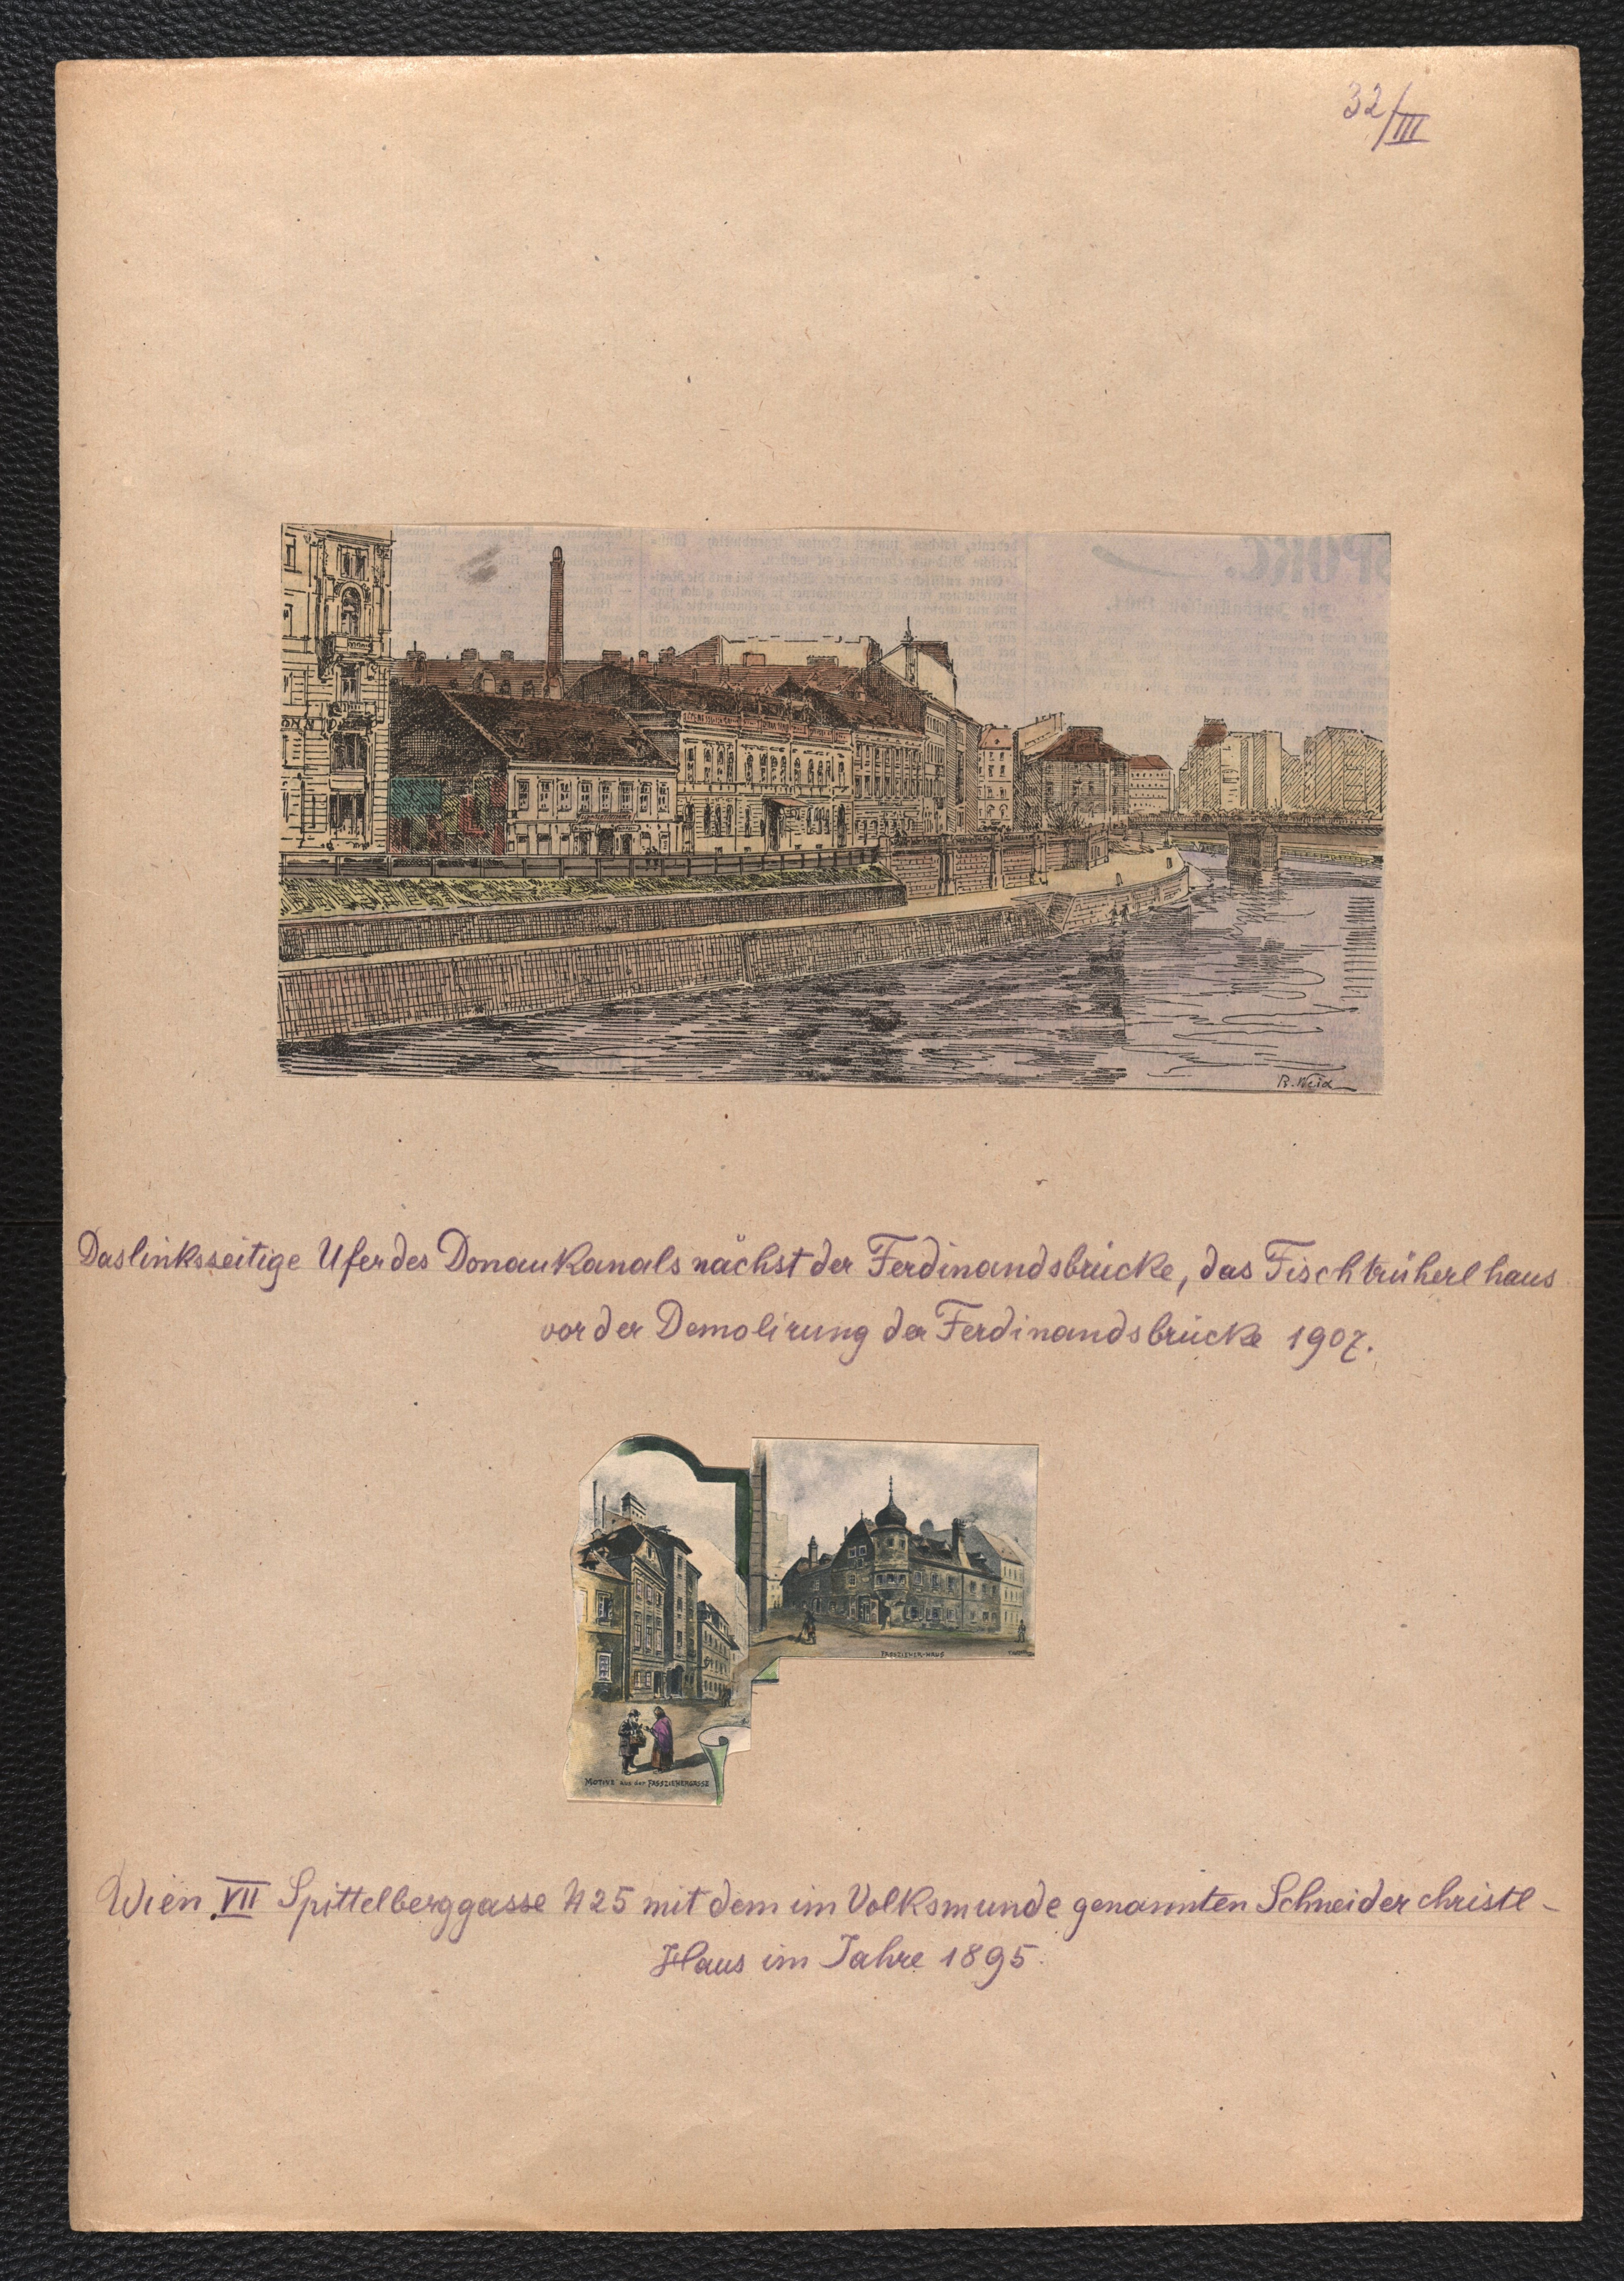 32/III
R. Weix
Das linksseitige Ufer des Donaukanals nächst der Ferdinandsbrücke, das Fischtrüherl haus
vor der Demolirung der Ferdinandsbrücke 1907.
FASSZIEHER-HAUS
MOTIVE aus der FASSZIEHERGASSE
Wien VII Spittelberggasse N25 mit dem im Volksmunde genannten Schneider christl-
Haus im Jahre 1895.